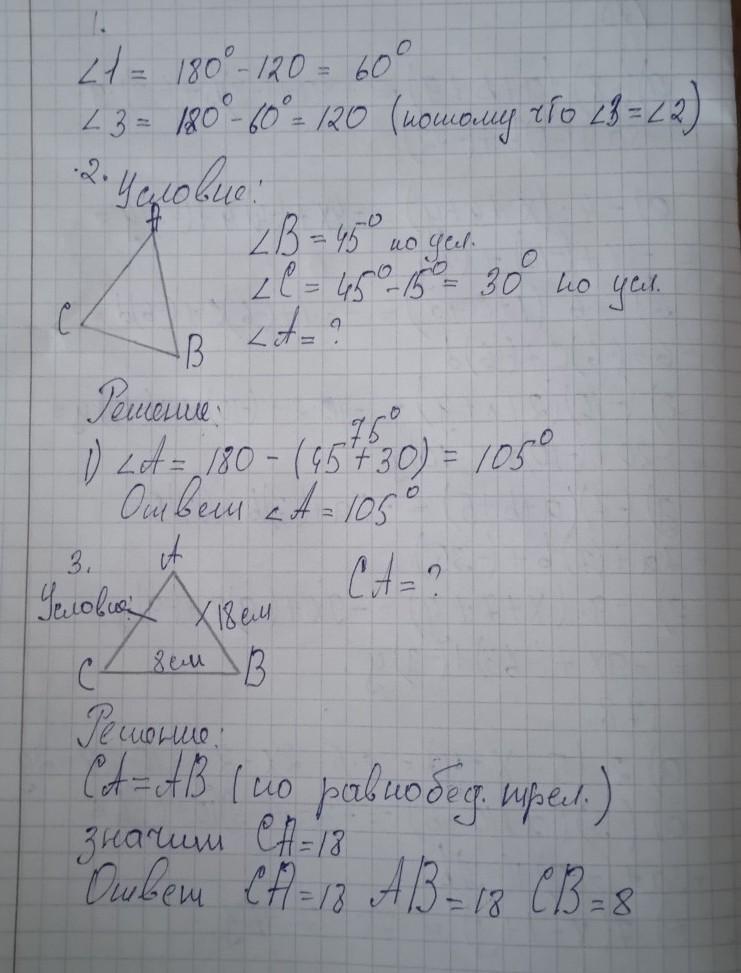 1.
∠1 = 180° - 120 = 60°
∠3 = 180° - 60° = 120 (потому что ∠3 = ∠2)
2. Условие:
A
C
B
∠B = 45° по усл.
∠C = 45° - 15° = 30° по усл.
∠A = ?
Решение:
75°
1) ∠A = 180 - (45 + 30) = 105°
Ответ ∠A = 105°
3.
Условие:
A
18 см
8 см
C
B
CA = ?
Решение:
CA = AB (по равнобед. трел.)
значит CA = 18
Ответ CA = 18 AB = 18 CB = 8